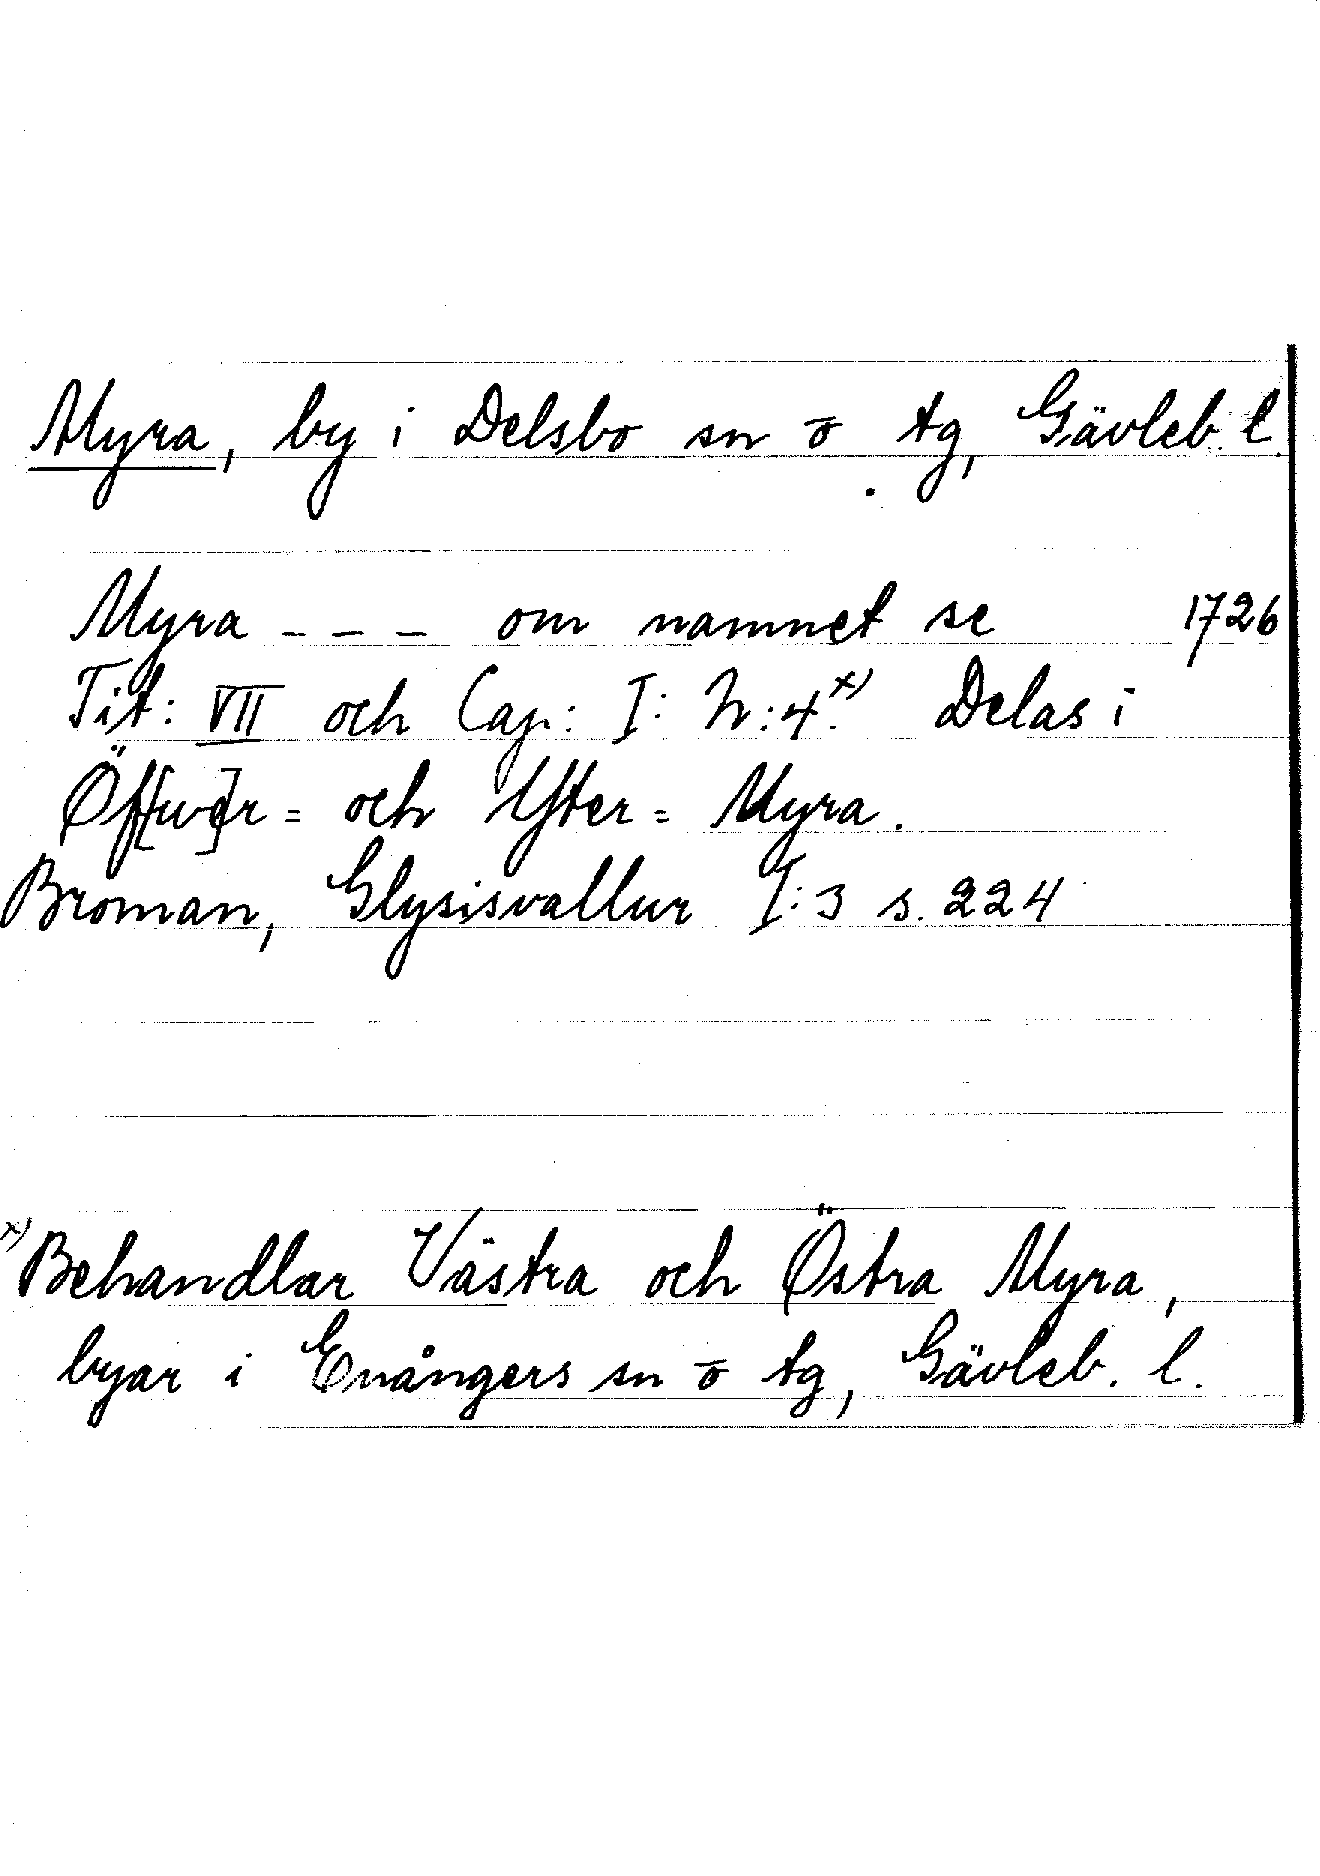 Myra, by i Delsbo sn o tg, Gävleb. l.
Myra - - - om namnet se 1726
Tit: VII och Cap: I: N:4.x) Delas i
Öf[we]r= och Yter= Myra.
Broman, Glysisvallur I:3 s. 224
x) Behandlar Västra och Östra Myra,
byar i Enångers sn o tg, Gävleb. l.